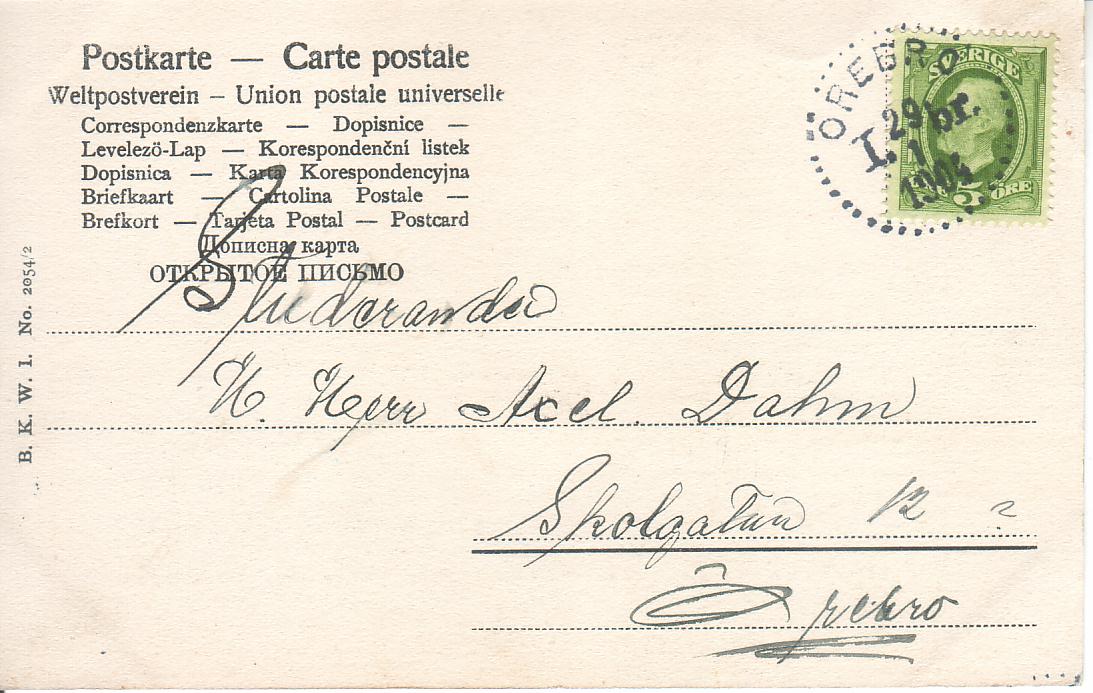 Postkarte — Carte postale
Weltpostverein – Union postale universelle
Correspondenzkarte — Dopisnice —
Levelező-Lap — Korespondenční listek
Dopisnica — Karta Korespondencyjna
Briefkaart — Cartolina Postale —
Brefkort — Tarjeta Postal — Postcard
Дописна карта
ОТКРЫТОЕ ПИСЬМО
B. K. W. I. No. 2054/2
ÖREBRO
29
I. 1 br.
1904
SVERIGE
5 ÖRE
Studeranden
H. Herr Axel Dahm
Skolgatan 12
Örebro